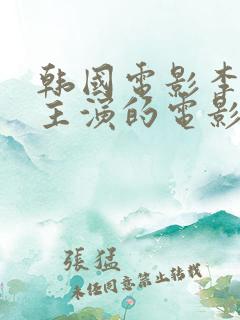 韩國電影李
主演的電影
張猛
未经同意禁止转载